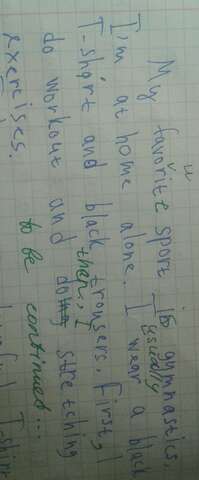 My favorite sport is gymnastics,
u
I'm at home alone. I usually wear a black
T-short and black trousers, first, I
do workout and then, I do stretching
exercises.
to be continued...
T-shirt